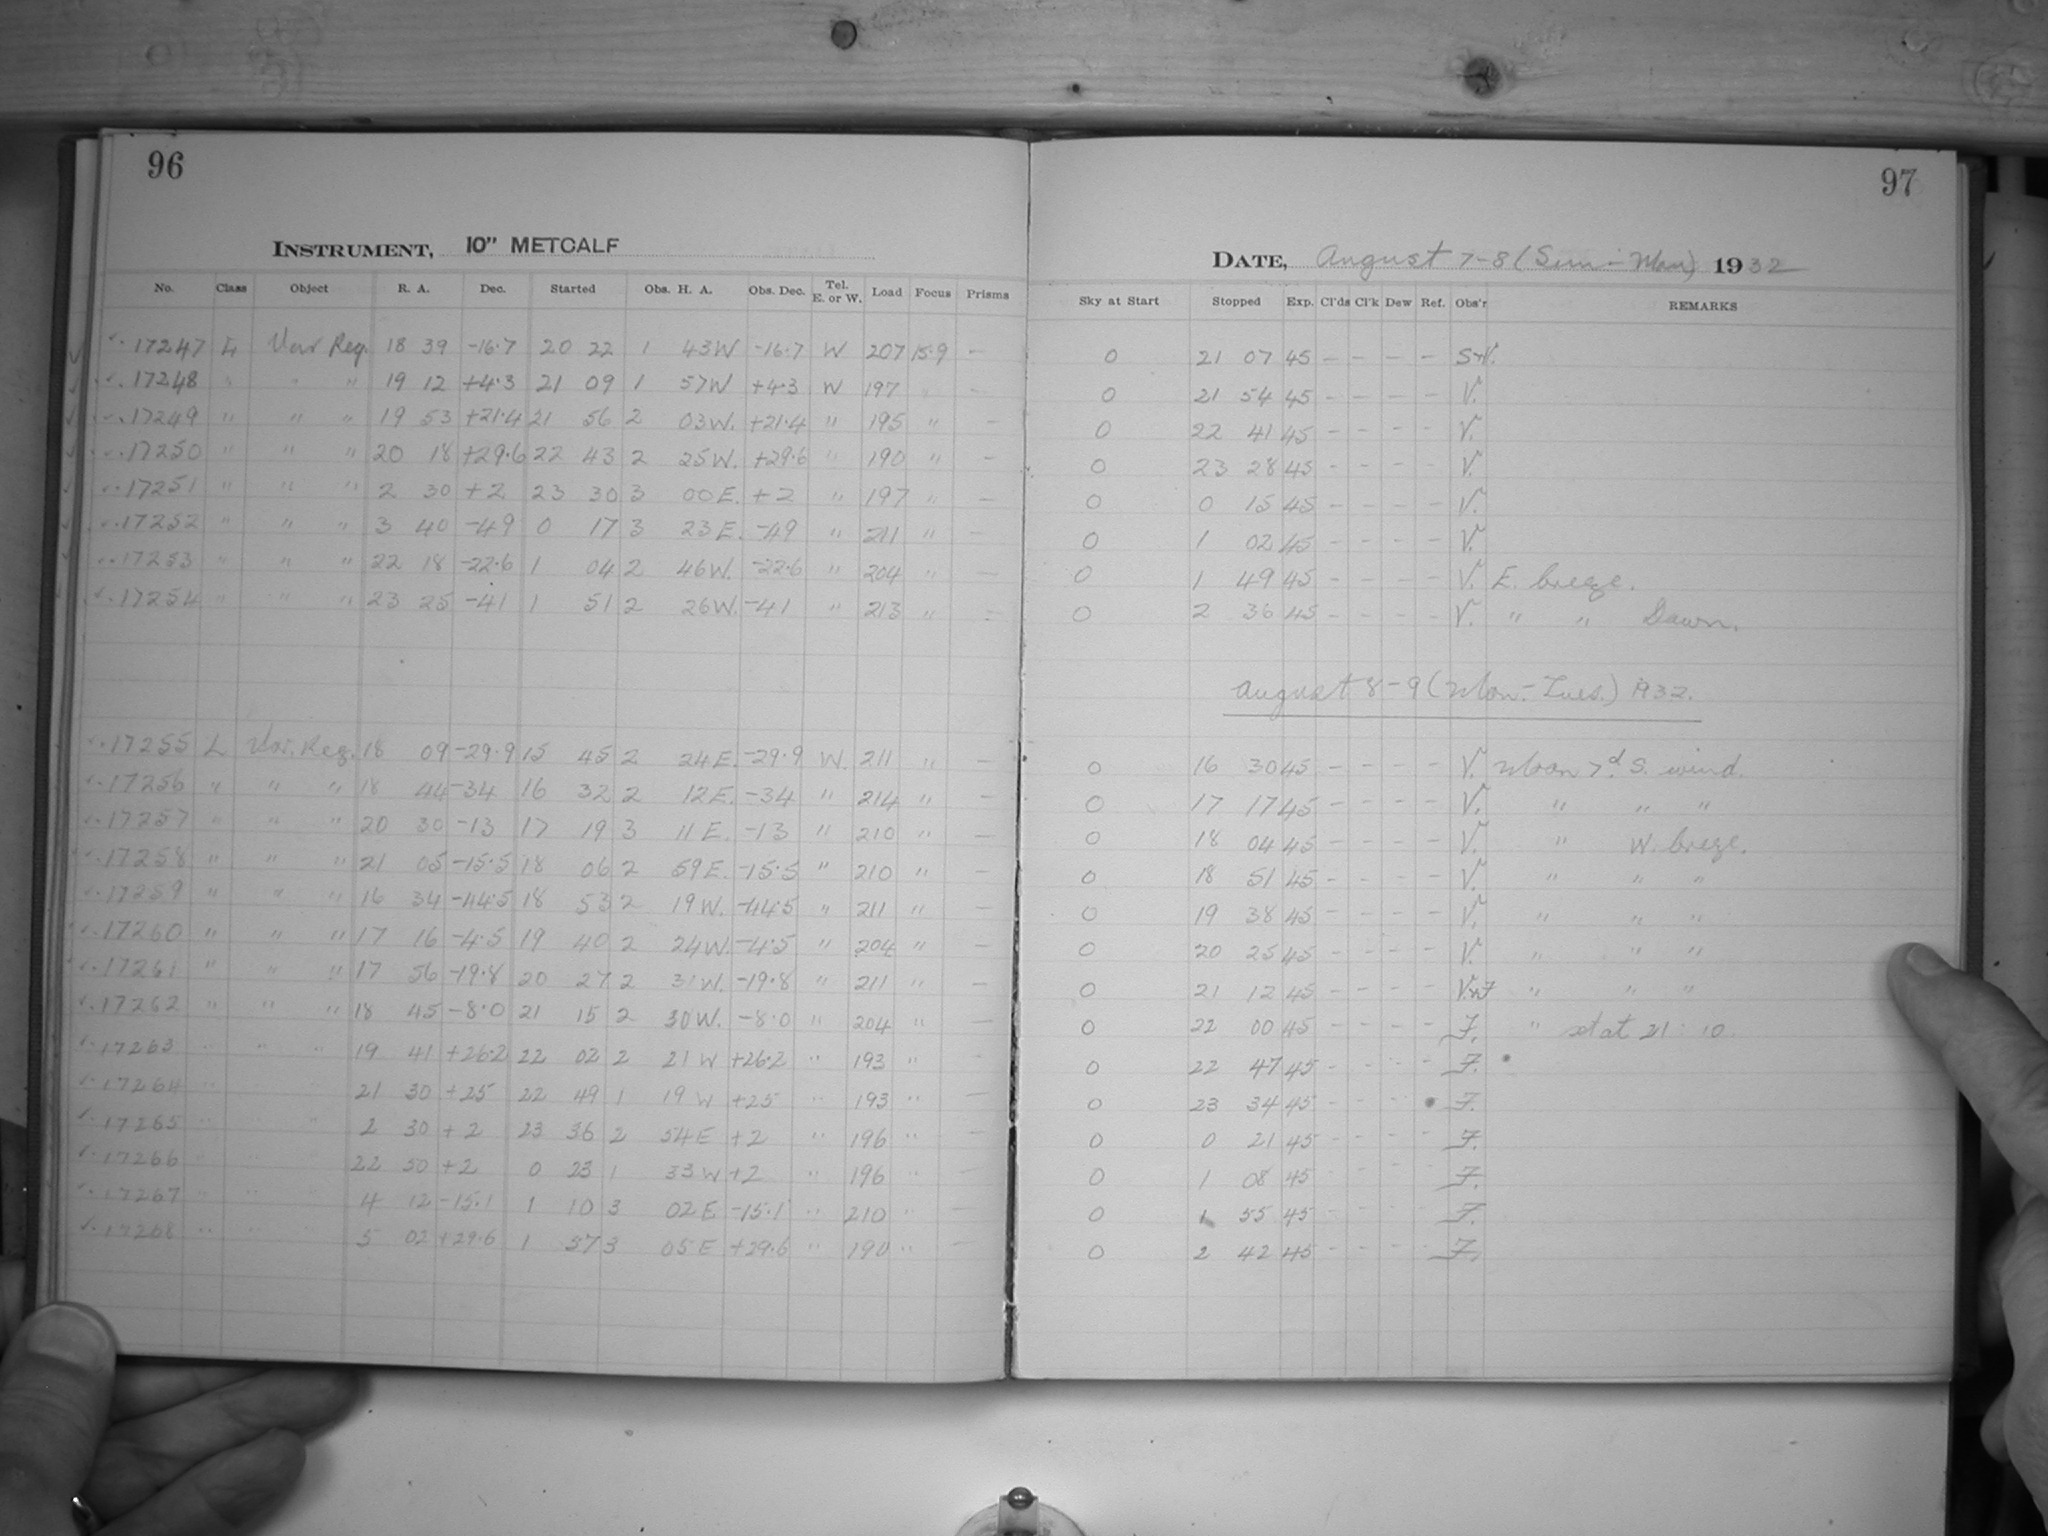 96
INSTRUMENT, 10" METCALF
No. Class Object R. A. Dec. Started Obs. H. A. Obs. Dec. Tel. E. or W. Load Focus Prisms
17247 L Var Reg. 18 39 -16.7 20 22 1 43W -16.7 W 207 15.9 —
17248 " " " 19 12 +4.3 21 09 1 57W +4.3 W 197 " —
17249 " " " 19 53 +21.4 21 56 2 03W. +21.4 " 195 " —
17250 " " " 20 18 +29.6 22 43 2 25W. +29.6 " 190 " —
17251 " " " 2 30 +2 23 30 3 00E. +2 " 197 " —
17252 " " " 3 40 -49 0 17 3 23E. -49 " 211 " —
17253 " " " 22 18 -22.6 1 04 2 46W. -22.6 " 204 " —
17254 " " " 23 25 -41 1 51 2 26W. -41 " 213 " —
17255 L Var. Reg. 18 09 -29.9 15 45 2 24E. -29.9 W. 211 " —
17256 " " " 18 44 -34 16 32 2 12E. -34 " 214 " —
17257 " " " 20 30 -13 17 19 3 11E. -13 " 210 " —
17258 " " " 21 05 -15.5 18 06 2 59E. -15.5 " 210 " —
17259 " " " 16 34 -44.5 18 53 2 19W. -44.5 " 211 " —
17260 " " " 17 16 -4.5 19 40 2 24W. -4.5 " 204 " —
17261 " " " 17 56 -19.8 20 27 2 31W. -19.8 " 211 " —
17262 " " " 18 45 -8.0 21 15 2 30W. -8.0 " 204 " —
17263 " " " 19 41 +26.2 22 02 2 21W +26.2 " 193 " —
17264 " " " 21 30 +25 22 49 1 19W +25 " 193 " —
17265 " " " 2 30 +2 23 36 2 54E +2 " 196 " —
17266 " " " 22 50 +2 0 23 1 33W +2 " 196 " —
17267 " " " 4 12 -15.1 1 10 3 02E -15.1 " 210 " —
17268 " " " 5 02 +29.6 1 57 3 05E +29.6 " 190 " —
97
DATE, August 7-8 (Sun-Mon) 1932
Sky at Start Stopped Exp. Cl'ds Cl'k Dew Ref. Obs'r REMARKS
0 21 07 45 - - - - S+V.
0 21 54 45 - - - - V.
0 22 41 45 - - - - V.
0 23 28 45 - - - - V.
0 0 15 45 - - - - V.
0 1 02 45 - - - - V.
0 1 49 45 - - - - V. E. breeze.
0 2 36 45 - - - - V. " " Dawn.
August 8-9 (Mon.-Tues.) 1932.
0 16 30 45 - - - - V. Moon 7d. S. wind.
0 17 17 45 - - - - V. " " "
0 18 04 45 - - - - V. " W. breeze.
0 18 51 45 - - - - V. " " "
0 19 38 45 - - - - V. " " "
0 20 25 45 - - - - V. " " "
0 21 12 45 - - - - V+F " " "
0 22 00 45 - - - - F. " set at 21 : 10
0 22 47 45 - - - - F.
0 23 34 45 - - - F.
0 0 21 45 - - - - F.
0 1 08 45 - - - - F.
0 1 55 45 - - - - F.
0 2 42 45 - - - - F.